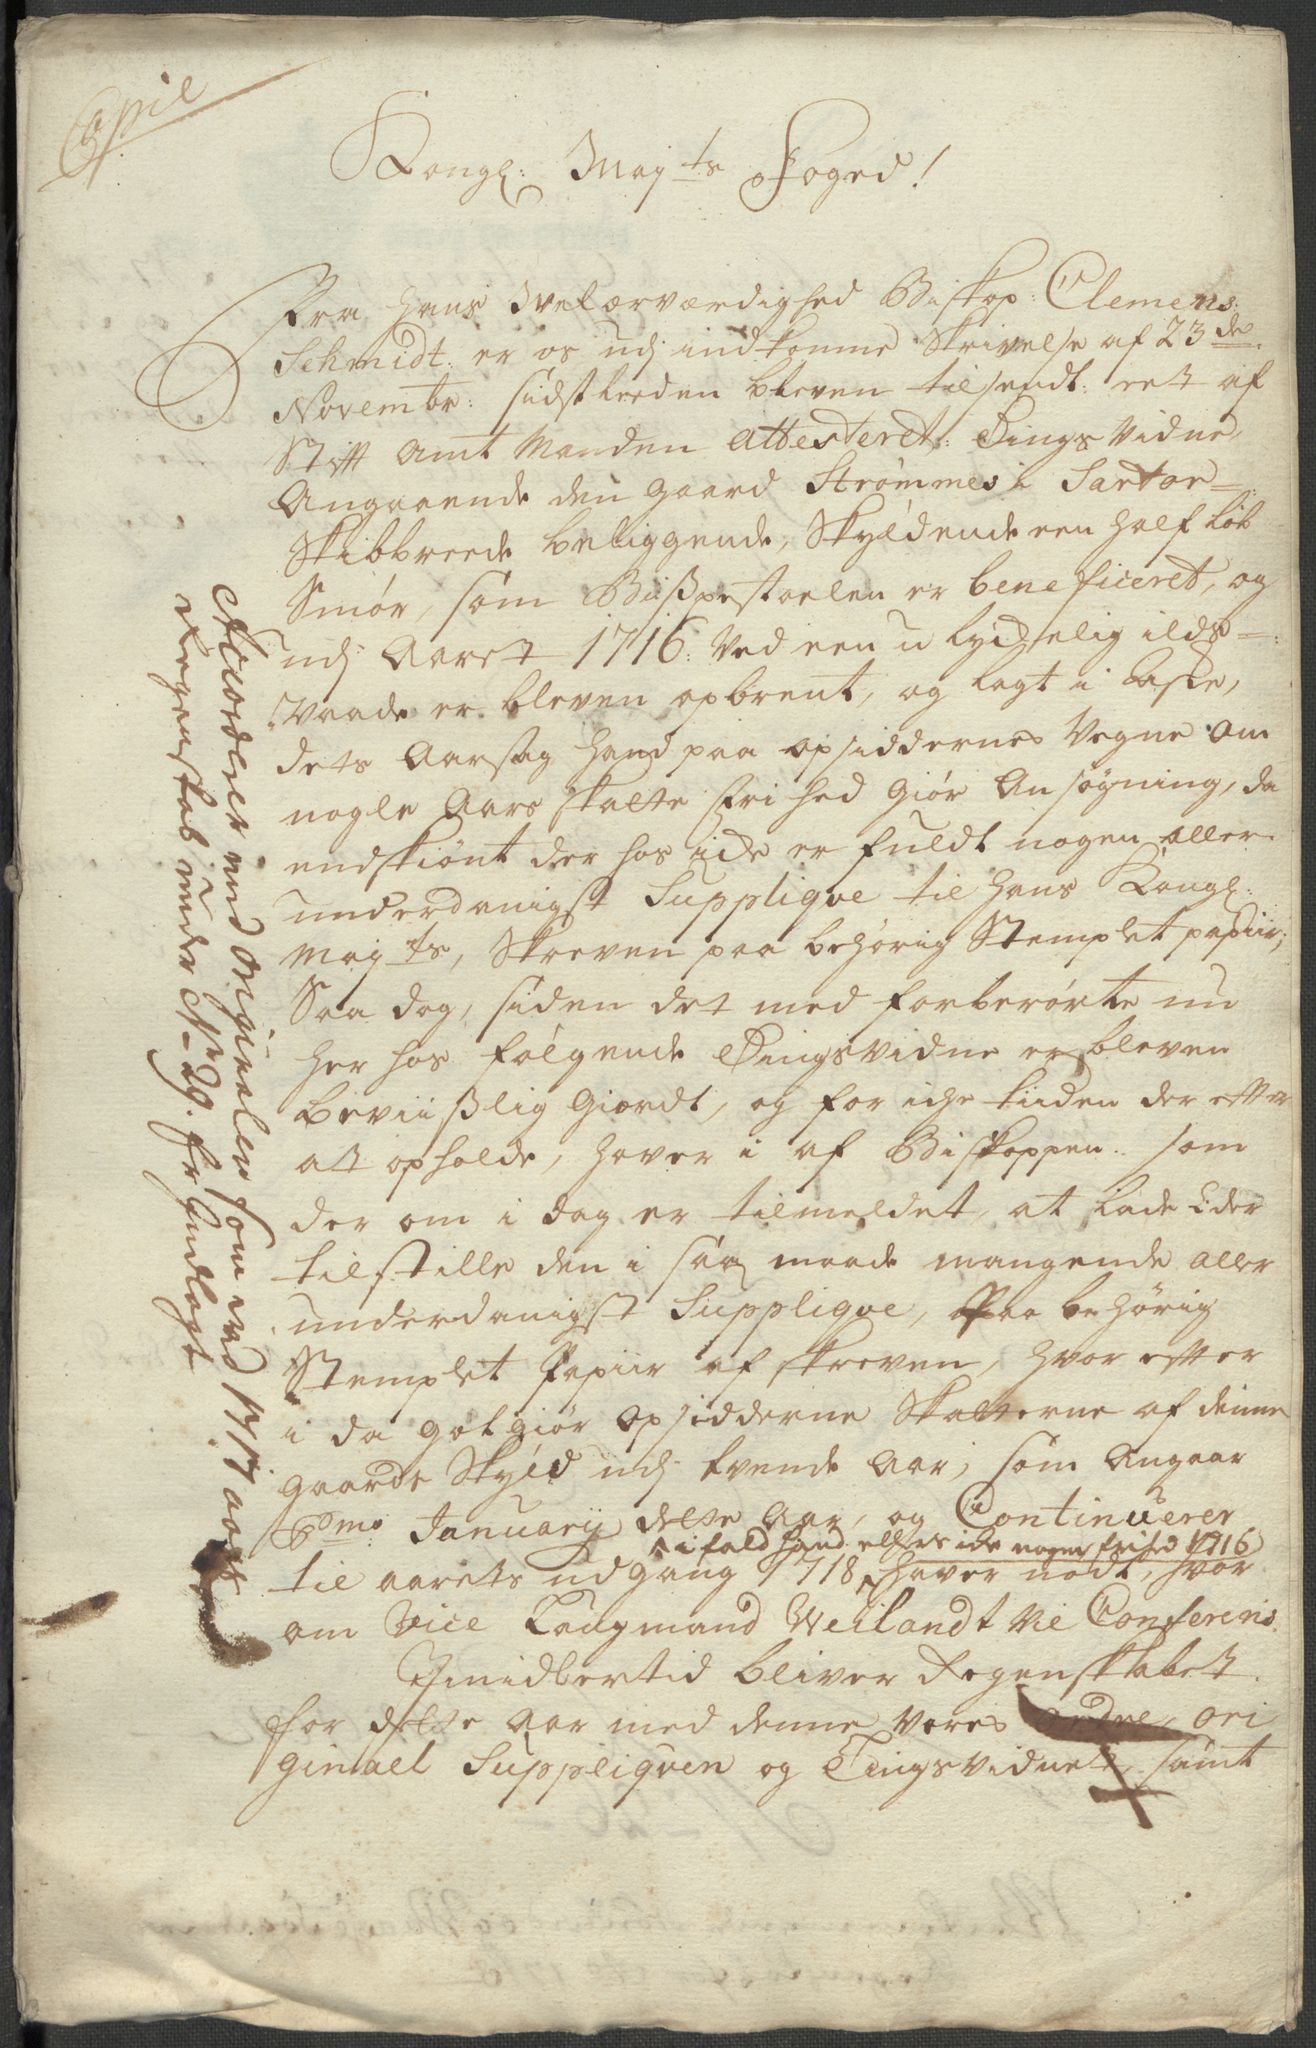 Copie
Kongl: Mayts Foged!
Fra hans Velærværdighed Biskop: Clemens
Schmidt: er os udj indkomne Skrivelse af 23de
Novembr: sidstleeden bleven tilsendt: eet af
Stifft Amt Manden Attesteret: Tings Vidne,
Angaaende den gaard Strømmes i Sartor=
Skibbreede beliggende, Skyldende een half Løb
Smør, som Bispestoelen er beneficeret, og
udj Aaret 1716. Ved een u lychelig ilds=
Vaade er bleven opbrent, og lagt i Aske,
dets Aarsag hand paa opsiddernes Vegne om
nogle Aars skatte Frihed giør Ansøgning, da
endskiønt der hos iche er fuldt nogen aller=
underdanigst Supplique til Hans Kongl:
Mayts, Skreven paa behørig Stemplet papiir;
Saa dog, siden det med forberørte nu
her hos følgende Tingsvidne er bleven
beviißlig giordt, og for iche tiiden der effter
at opholde, haver i af Biskoppen som
der om i dag er tilmeldet, at lade Eder
tilstille den i saa maade mangende aller
underdanigst Supplique, Paa behørig
Stemplet Papiir af skreven, hvor effter
i da gotgiør opsidderne Skatterne af denne
gaards Skyld udj tvende Aar, som Angaar
Pmo January dette Aar, og Continuerer
i fald hand ellers iche nogen frihed 1716
til aarets udgang 1718, haver nødt, hvor
om Vice Laugmand Weilandt vil Conferens.
Imidlertid bliver Regenskabet
for dette Aar med denne Vores ordre, ori
ginael Suppliquen og Tingsvidnet, samt
Accorderer med Originalen som ved 1717 aars
Regenskab under No 29. er Indlagt